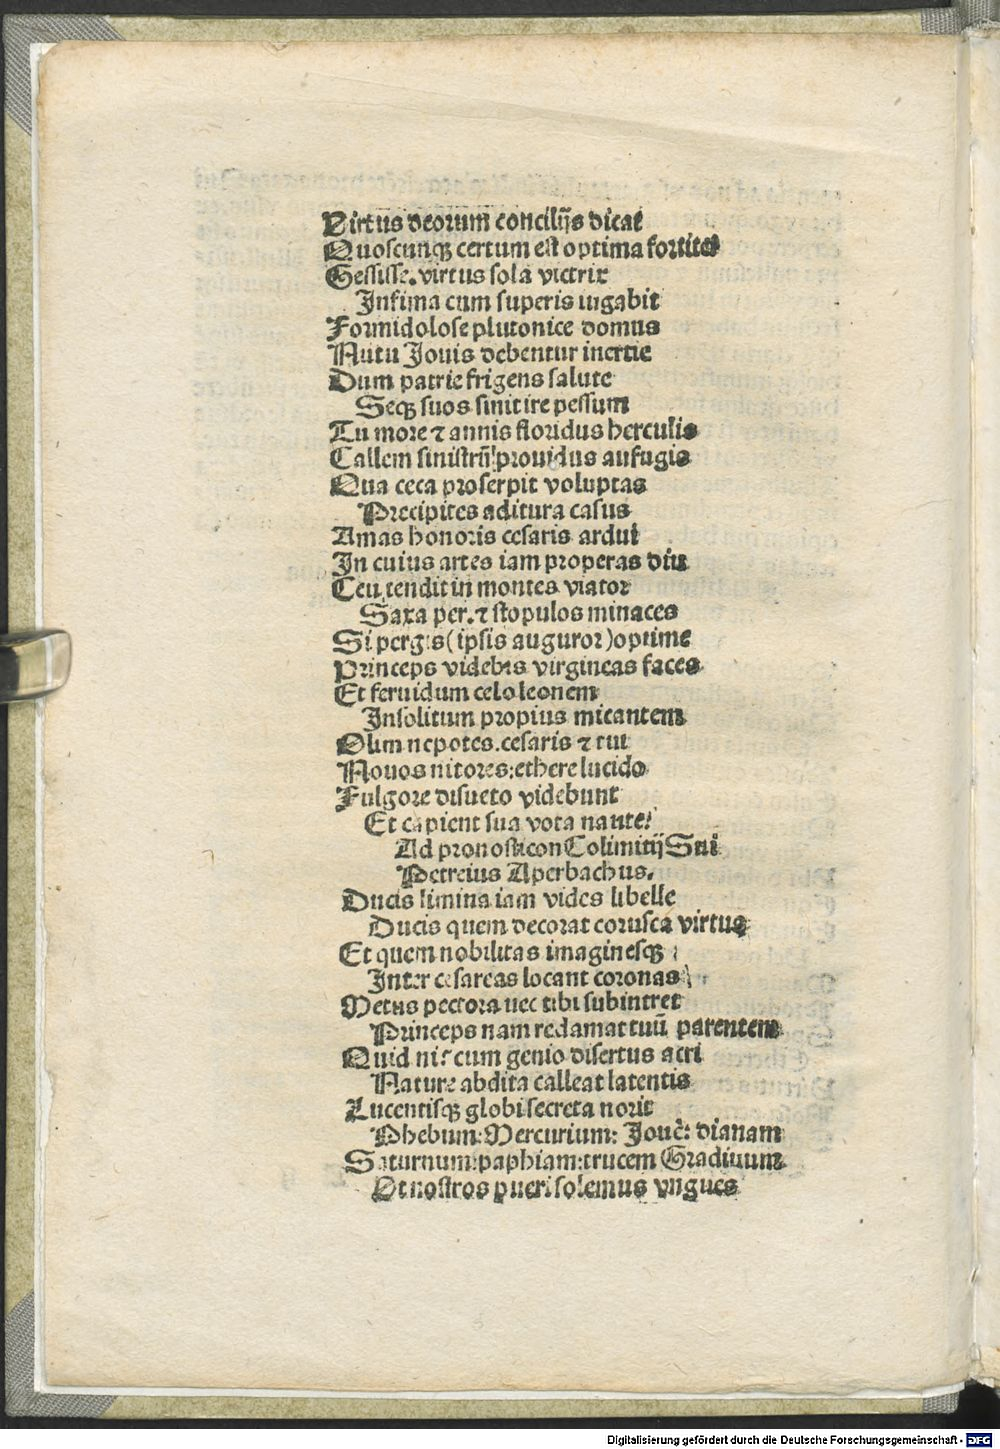 Virtus deorum concilijs dicat
Quoscunqꝫ certum est optima fortiter
Gessisse. virtus sola victrix
Infima cum superis iugabit
Formidolose plutonice domus
Nutu Jouis debentur inertie
Dum patrie frigens salute
Seqꝫ suos sinit ire pessum
Tu more ⁊ annis floridus herculis
Callem sinistrū prouidus aufugis
Qua ceca proserpit voluptas
Precipites aditura casus
Amas honoris cesaris ardui
In cuius artes iam properas diu
Ceu tendit in montes viator
Saxa per. ⁊ stopulos minaces
Si pergis (ipsis auguror) optime
Princeps videbis virgineas faces
Et feruidum celo leonem
Insolitum propius micantem
Olim nepotes. cesaris ⁊ tui
Nouos nitores: ethere lucido
Fulgore disueto videbunt
Et capient sua vota nante
Ad pronosticon Colimitij Sui
Petreius Aperbachus.
Ducis limina iam vides libelle
Ducis quem decorat corusca virtus
Et quem nobilitas imaginesqꝫ
Inter cesareas locant coronas
Metus pectora nec tibi subintret
Princeps nam redamat tuū parentem
Quid ni? cum genio disertus acri
Nature abdita calleat latentis
Lucentisqꝫ globi secreta norit
Phebum: Mercurium: Jouē: dianam
Saturnum: paphiam: trucem Gradiuum
Vt nostros pueri solemus vngues
Digitalisierung gefördert durch die Deutsche Forschungsgemeinschaft - DFG